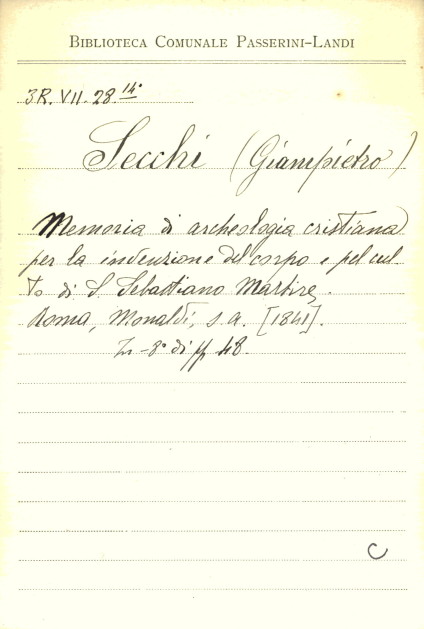 BIBLIOTECA COMUNALE PASSERINI-LANDI
3R. VII. 28 14°
Secchi (Giampietro)
Memoria di archeologia cristiana
per la invenzione del corpo e pel cul
to di S. Sebastiano Martire,
Roma, Monaldi, s. a. [1841].
In-8° di pp 48.
C